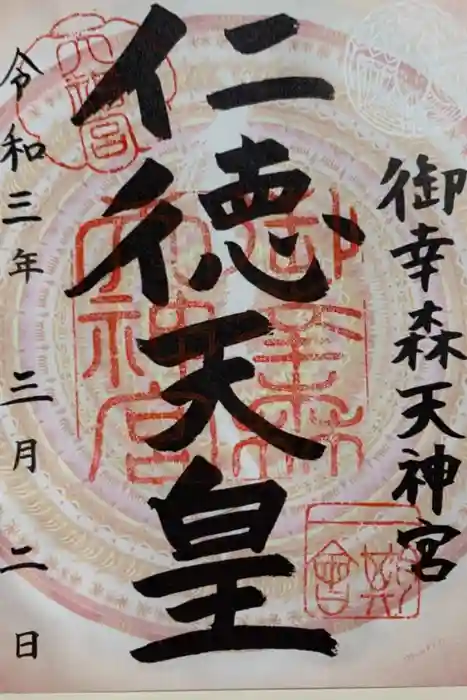 御幸森天神宮
仁徳天皇
令和三年 三月 二日